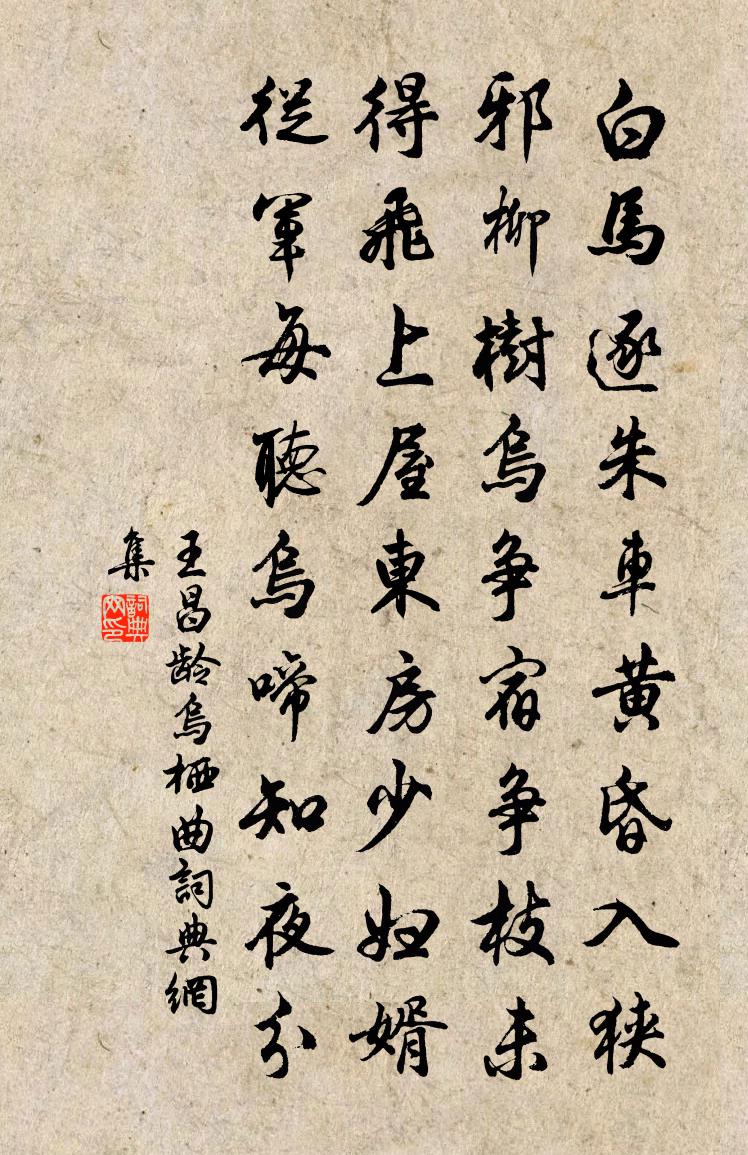 白馬逐朱車黃昏入狹
邪柳樹烏争宿争枝未
得飛上屋東房少妇婿
從軍每聽烏啼知夜分
王昌龄烏栖曲詞典網
集
詞典网印